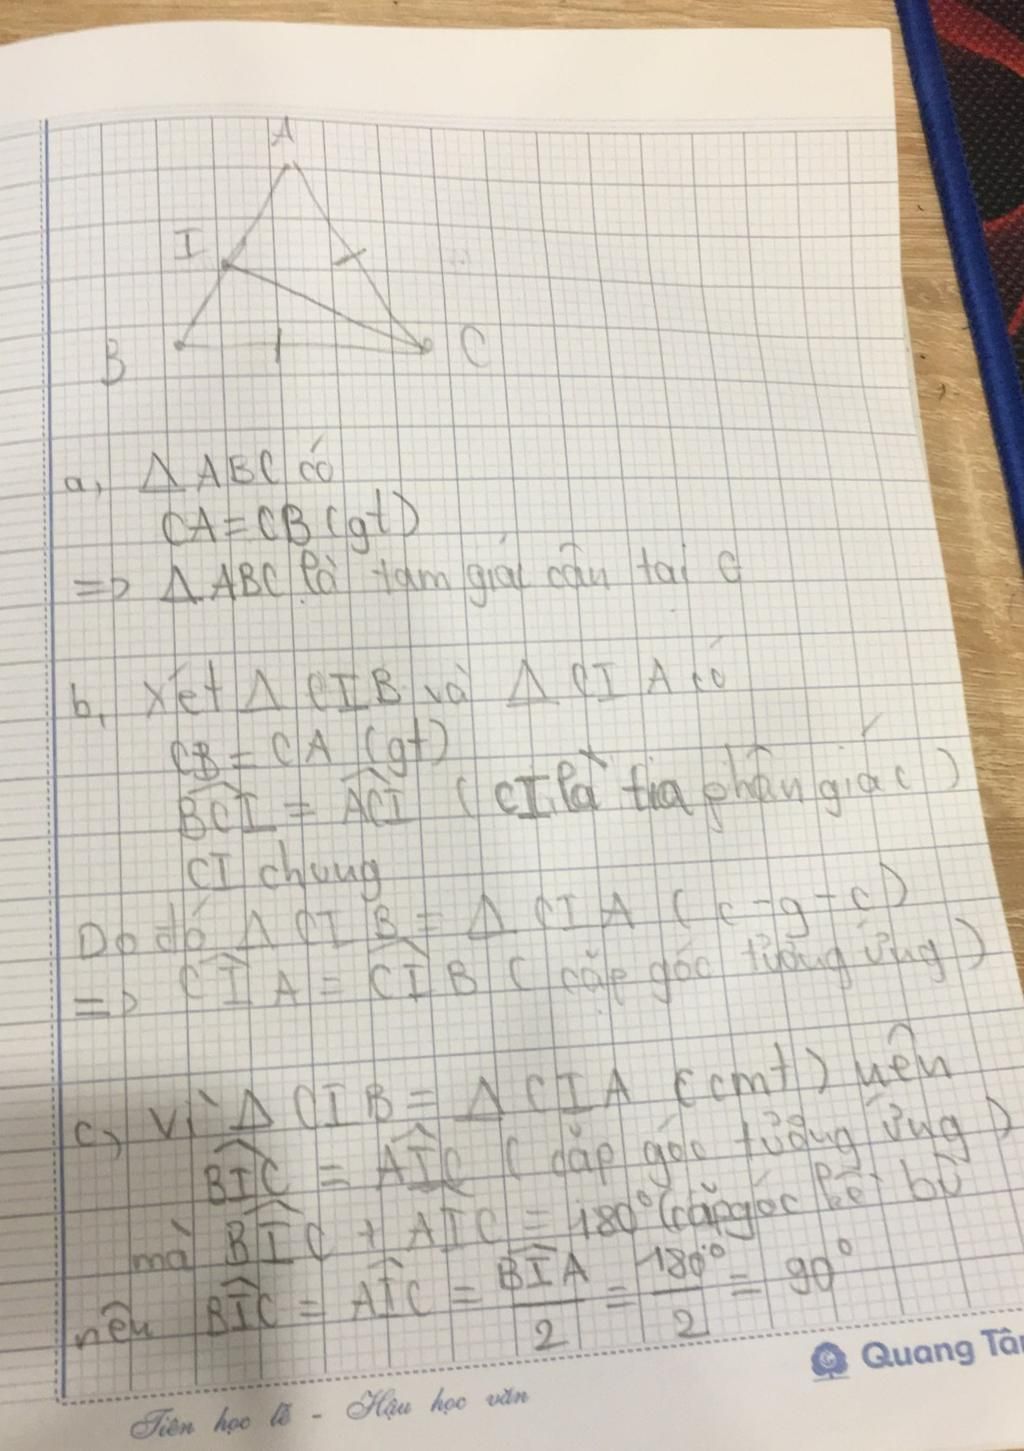 A
I
B
C
a, Δ ABC có
CA = CB (gt)
=> Δ ABC là tam giác cân tại C
b, Xét Δ CIB và Δ CIA có
CB = CA (gt)
BCI = ACI (CI là tia phân giác)
CI chung
Do đó Δ CIB = Δ CIA (c-g-c)
=> CIA = CIB (cặp góc tương ứng)
c, Vì Δ CIB = Δ CIA (cmt) nên
BIC = AIC (cặp góc tương ứng)
mà BIC + AIC = 180° (cặp góc kề bù
nên BIC = AIC = BIA/2 = 180°/2 = 90°
Quang Tâ
Tiên học lễ - Hậu học văn